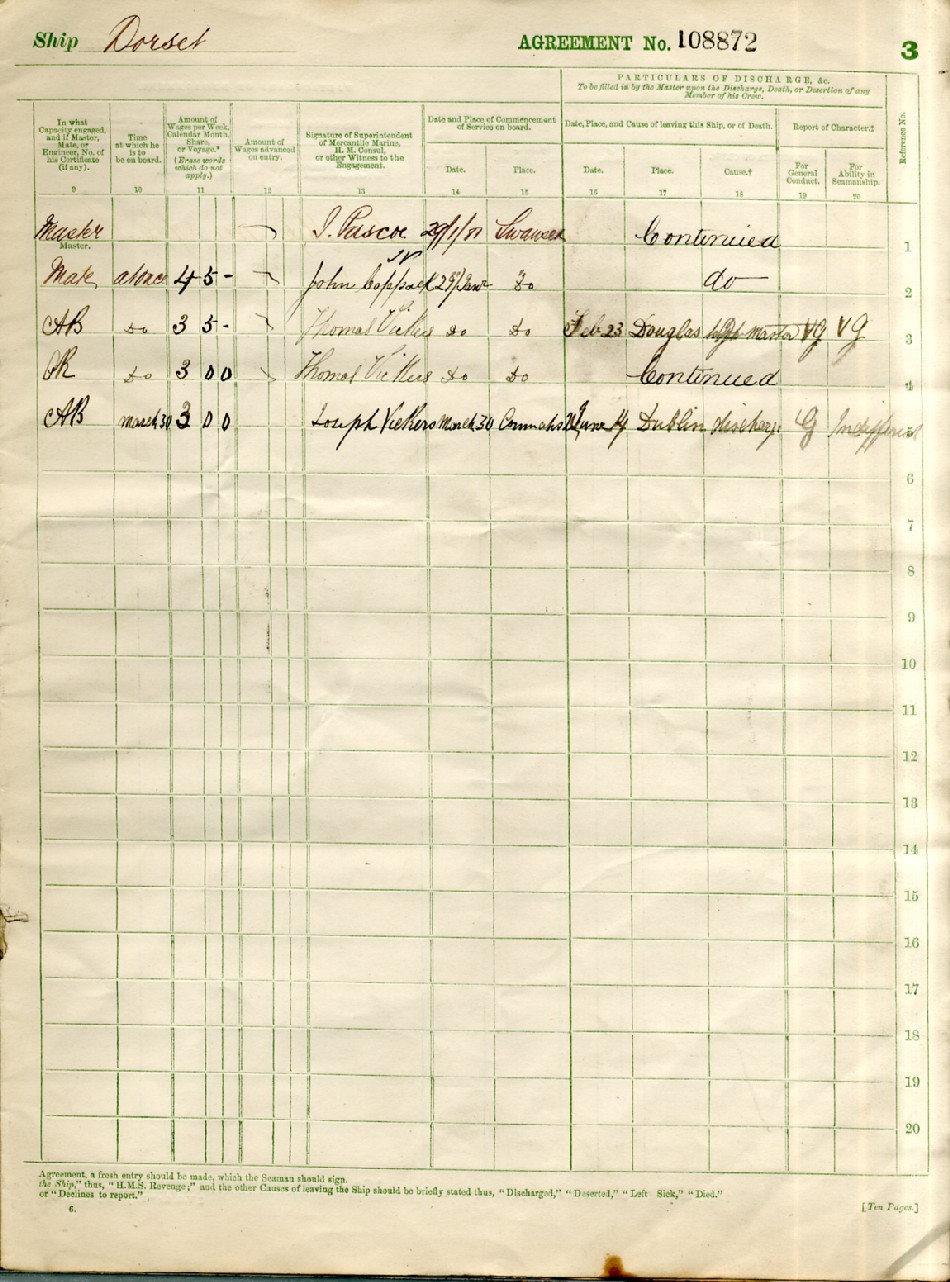 Ship Dorset AGREEMENT No. 108872 3
PARTICULARS OF DISCHARGE, &c.
To be filled in by the Master upon the Discharge, Death, or Desertion of any
Member of his Crew.
In what Capacity engaged, and if Master, Mate, or Engineer, No. of his Certificate (if any).
Time at which he is to be on board.
Amount of Wages per Week, Calendar Month, Share, or Voyage.* (Erase words which do not apply.)
Amount of Wages advanced on entry.
Signature of Superintendent of Mercantile Marine, H. M. Consul, or other Witness to the Engagement.
Date and Place of Commencement of Service on board.
Date. Place.
Date, Place, and Cause of leaving this Ship, or of Death.
Date. Place. Cause.†
Report of Character‡
For General Conduct. For Ability in Seamanship.
Reference No.
9 10 11 12 13 14 15 16 17 18 19 20
Master J. Pascoe Swansea Continued 1
Master.
Mate at once 4 5 - John Coppack Do do 2
AB Do 3 5 - Thomas Vickers Do Do Feb 23 Douglas VG VG 3
Do 3 0 0 Thomas Vickers Do Do Continued 4
AB March 30 3 0 0 Joseph Vickers March 30 June 4 Dublin G Indifferent 5
6
7
8
9
10
11
12
13
14
15
16
17
18
19
20
Agreement, a fresh entry should be made, which the Seaman should sign.
the Ship," thus, "H.M.S. Revenge," and the other Causes of leaving the Ship should be briefly stated thus, "Discharged," "Deserted," "Left Sick," "Died."
or "Declines to report."
6. [Ten Pages.]